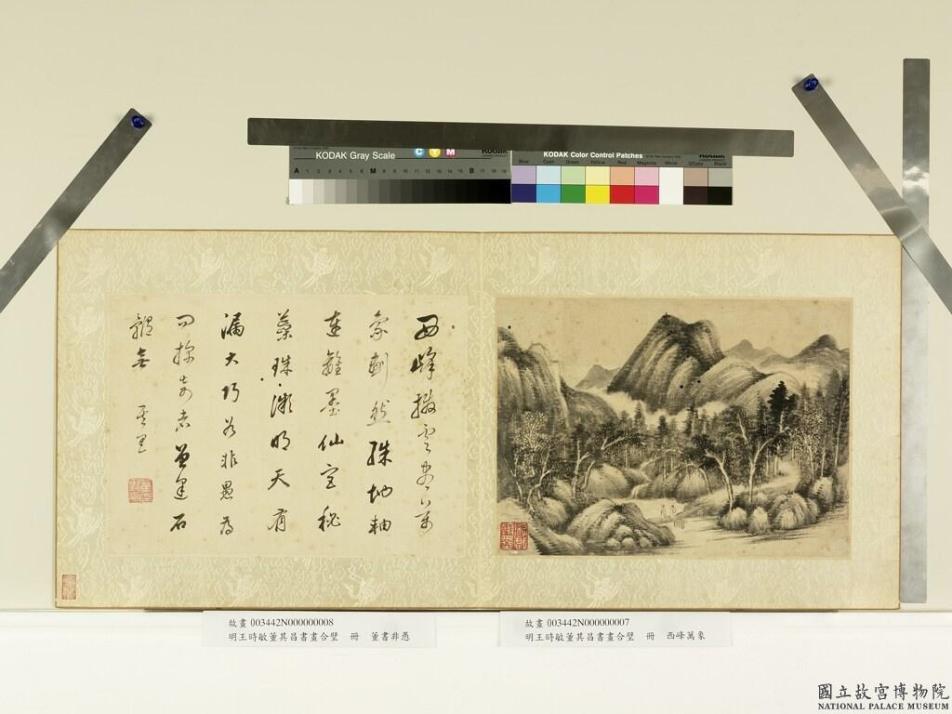 KODAK Gray Scale
C Y M
KODAK
A 1 2 3 4 5 6 M 8 9 10 11 12 13 14 15 B 17 18 19
KODAK Color Control Patches
Blue Cyan Green Yellow Red Magenta White 3/Color Black
西峰撥雲
象 然殊地軸
連 墨仙室秘
蘂珠微明天有
漏大巧若非愚為
者曾逢石
其昌
故畫 003442N000000008
明王時敏董其昌書畫合璧 冊 董書非愚
故畫 003442N000000007
明王時敏董其昌書畫合璧 冊 西峰萬象
國立故宮博物院
NATIONAL PALACE MUSEUM